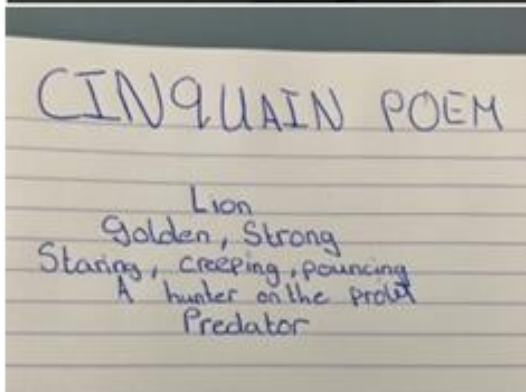 CINQUAIN POEM
Lion
Golden, Strong
Staring, creeping, pouncing
A hunter on the prowl
Predator